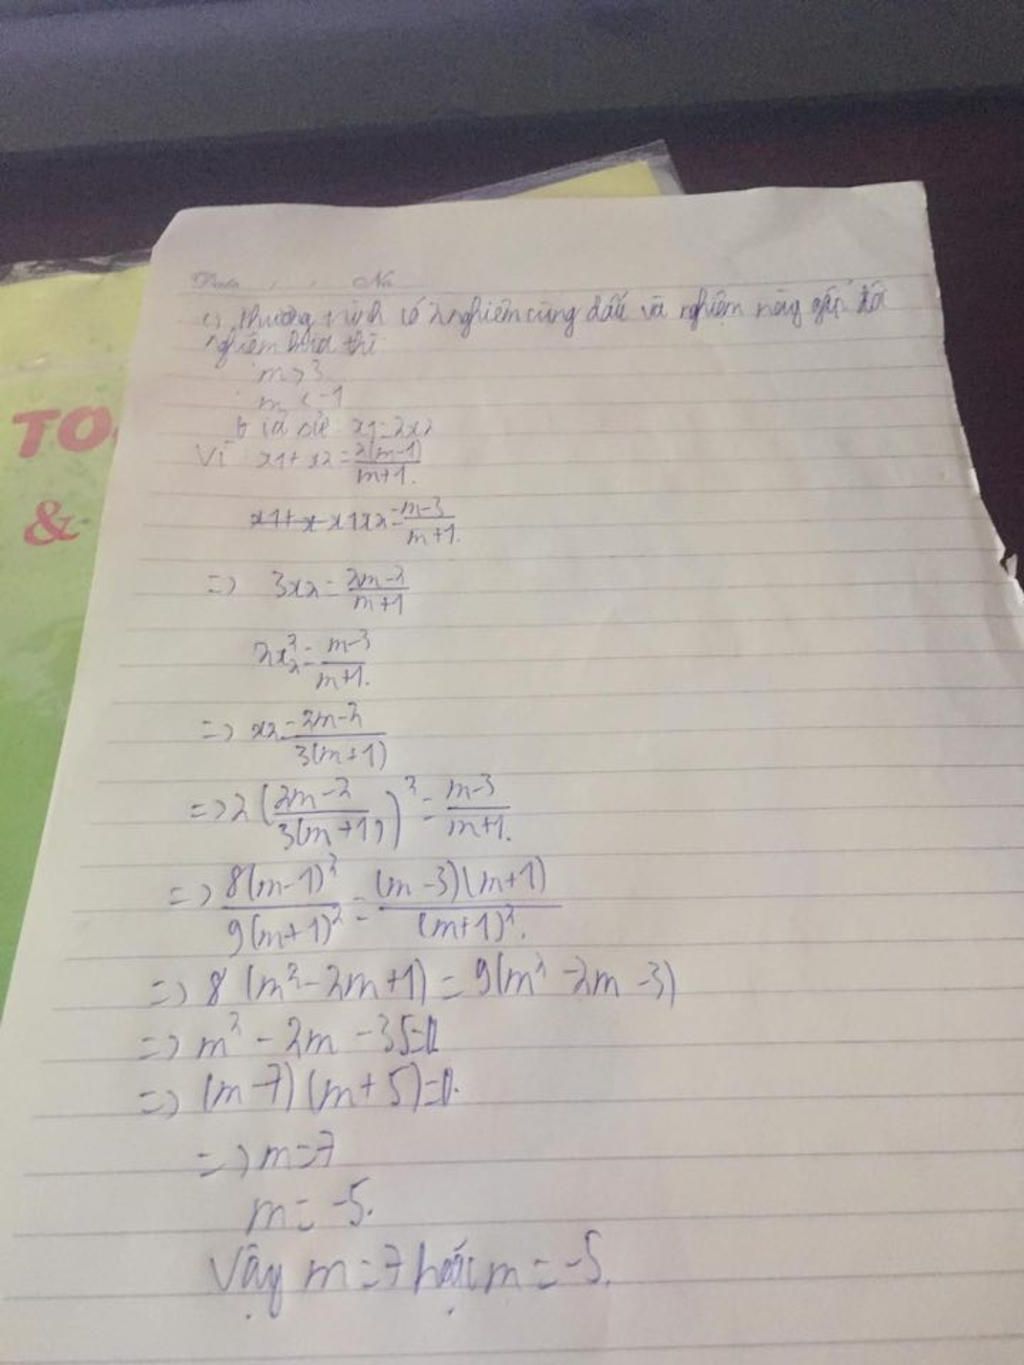 TO
&
Date , , No
c) Phương trình có 2 nghiệm cùng dấu và nghiệm này gấp đôi
nghiệm kia thì
m > 3
m < -1
Giả sử x1=2x2
Vì x1+x2=2(m-1)/m+1.
x1+x x1x2=m-3/m+1.
=> 3x2=2m-2/m+1
2x₂²=m-3/m+1.
=> x2=2m-2/3(m+1)
=> 2(2m-2/3(m+1))²=m-3/m+1.
=> 8(m-1)²/9(m+1)²=(m-3)(m+1)/(m+1)².
=> 8(m²-2m+1)=9(m²-2m-3)
=> m²-2m-35=0
=> (m-7)(m+5)=0.
=> m=7
m=-5.
Vậy m=7 hoặc m=-5.